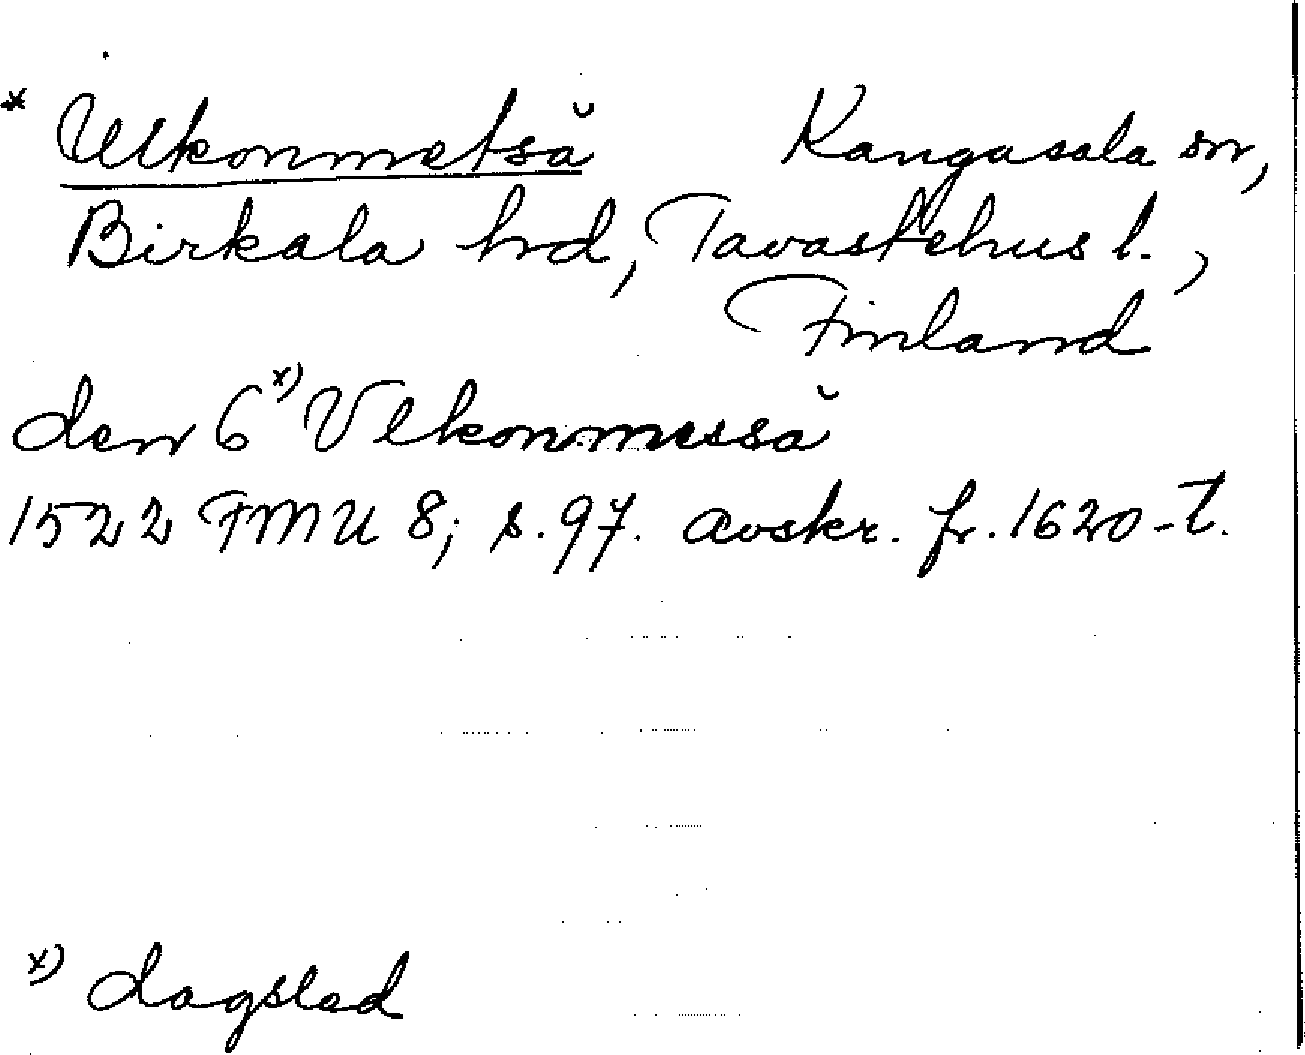 * Ulkonmetsä Kangasala sn,
Birkala hrd, Tavastehus l.,
Finland
den 6 x) Vlkonmessä
1522 FMU 8; s. 97. avskr. fr. 1620-t.
x) dagsled